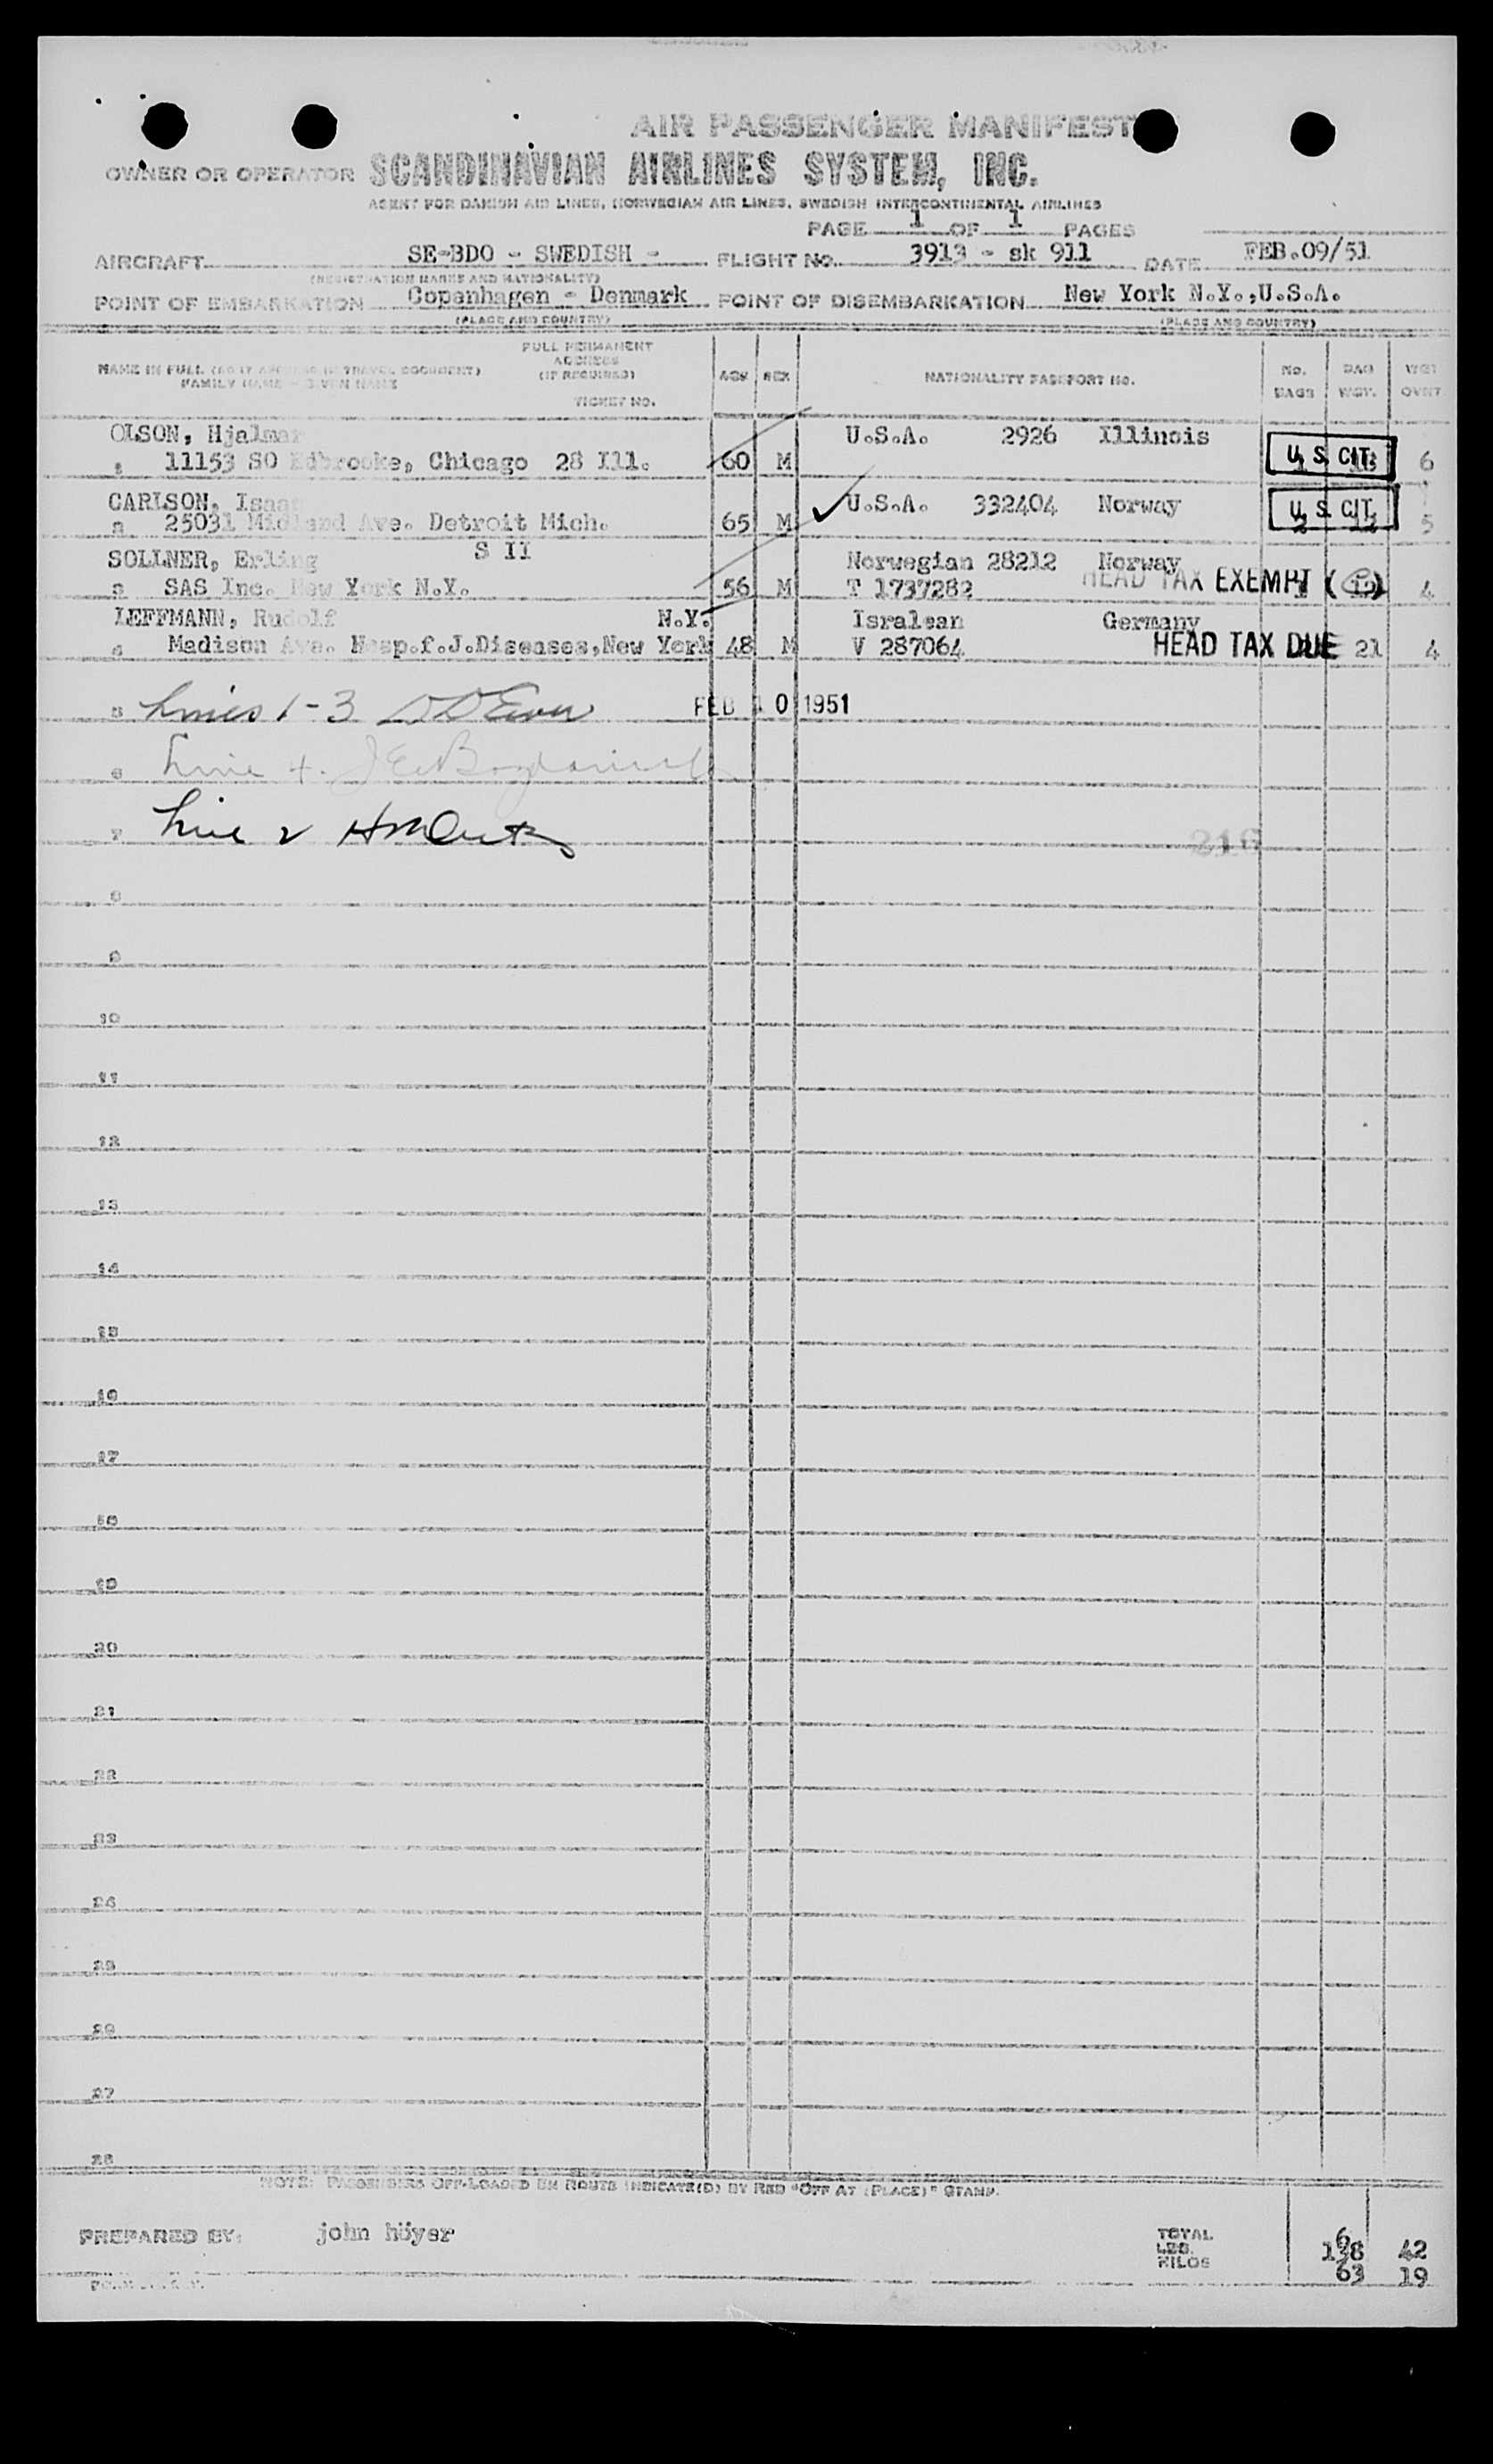 AIR PASSENGER MANIFEST
OWNER OR OPERATOR SCANDINAVIAN AIRLINES SYSTEM, INC.
AGENT FOR DANISH AIR LINES, NORWEGIAN AIR LINES, SWEDISH INTERCONTINENTAL AIRLINES
PAGE 1 OF 1 PAGES
AIRCRAFT SE-BDO - SWEDISH - FLIGHT NO. 3913 - sk 911 DATE FEB.09/51
(REGISTRATION MARKS AND NATIONALITY)
POINT OF EMBARKATION Copenhagen - Denmark POINT OF DISEMBARKATION New York N.Y.,U.S.A.
(PLACE AND COUNTRY) (PLACE AND COUNTRY)
FULL PERMANENT
ADDRESS
NAME IN FULL (AS IT APPEARS IN TRAVEL DOCUMENT) (IF REQUIRED) AGE SEX NATIONALITY PASSPORT NO. NO. BAGS BAG WGT. WGT OVWT
FAMILY NAME - GIVEN NAME
TICKET NO.
OLSON, Hjalmar U.S.A. 2926 Illinois
11153 SO Edbrooke, Chicago 28 Ill. 60 M U.S. CIT. 6
CARLSON, Isaac U.S.A. 332404 Norway
25031 Midland Ave. Detroit Mich. 65 M U.S. CIT. 5
S II
SOLLNER, Erling Norwegian 28212 Norway
3 SAS Inc. New York N.Y. 56 M T 1737282 HEAD TAX EXEMPT 4
LEFFMANN, Rudolf N.Y. Isralean Germany
4 Madison Ave. Hosp.f.J.Diseases,New York 48 M V 287064 HEAD TAX DUE 21 4
5 Lines 1-3 FEB 10 1951
6 Line 4.
7 Line 2
216
8
9
10
11
12
13
14
15
16
17
18
19
20
21
22
23
24
25
26
27
28
NOTE: PASSENGERS OFF-LOADED EN ROUTE INDICATE(D) BY RED "OFF AT (PLACE)" STAMP.
PREPARED BY: john höyer TOTAL 6
LBS. 138 42
KILOS 63 19